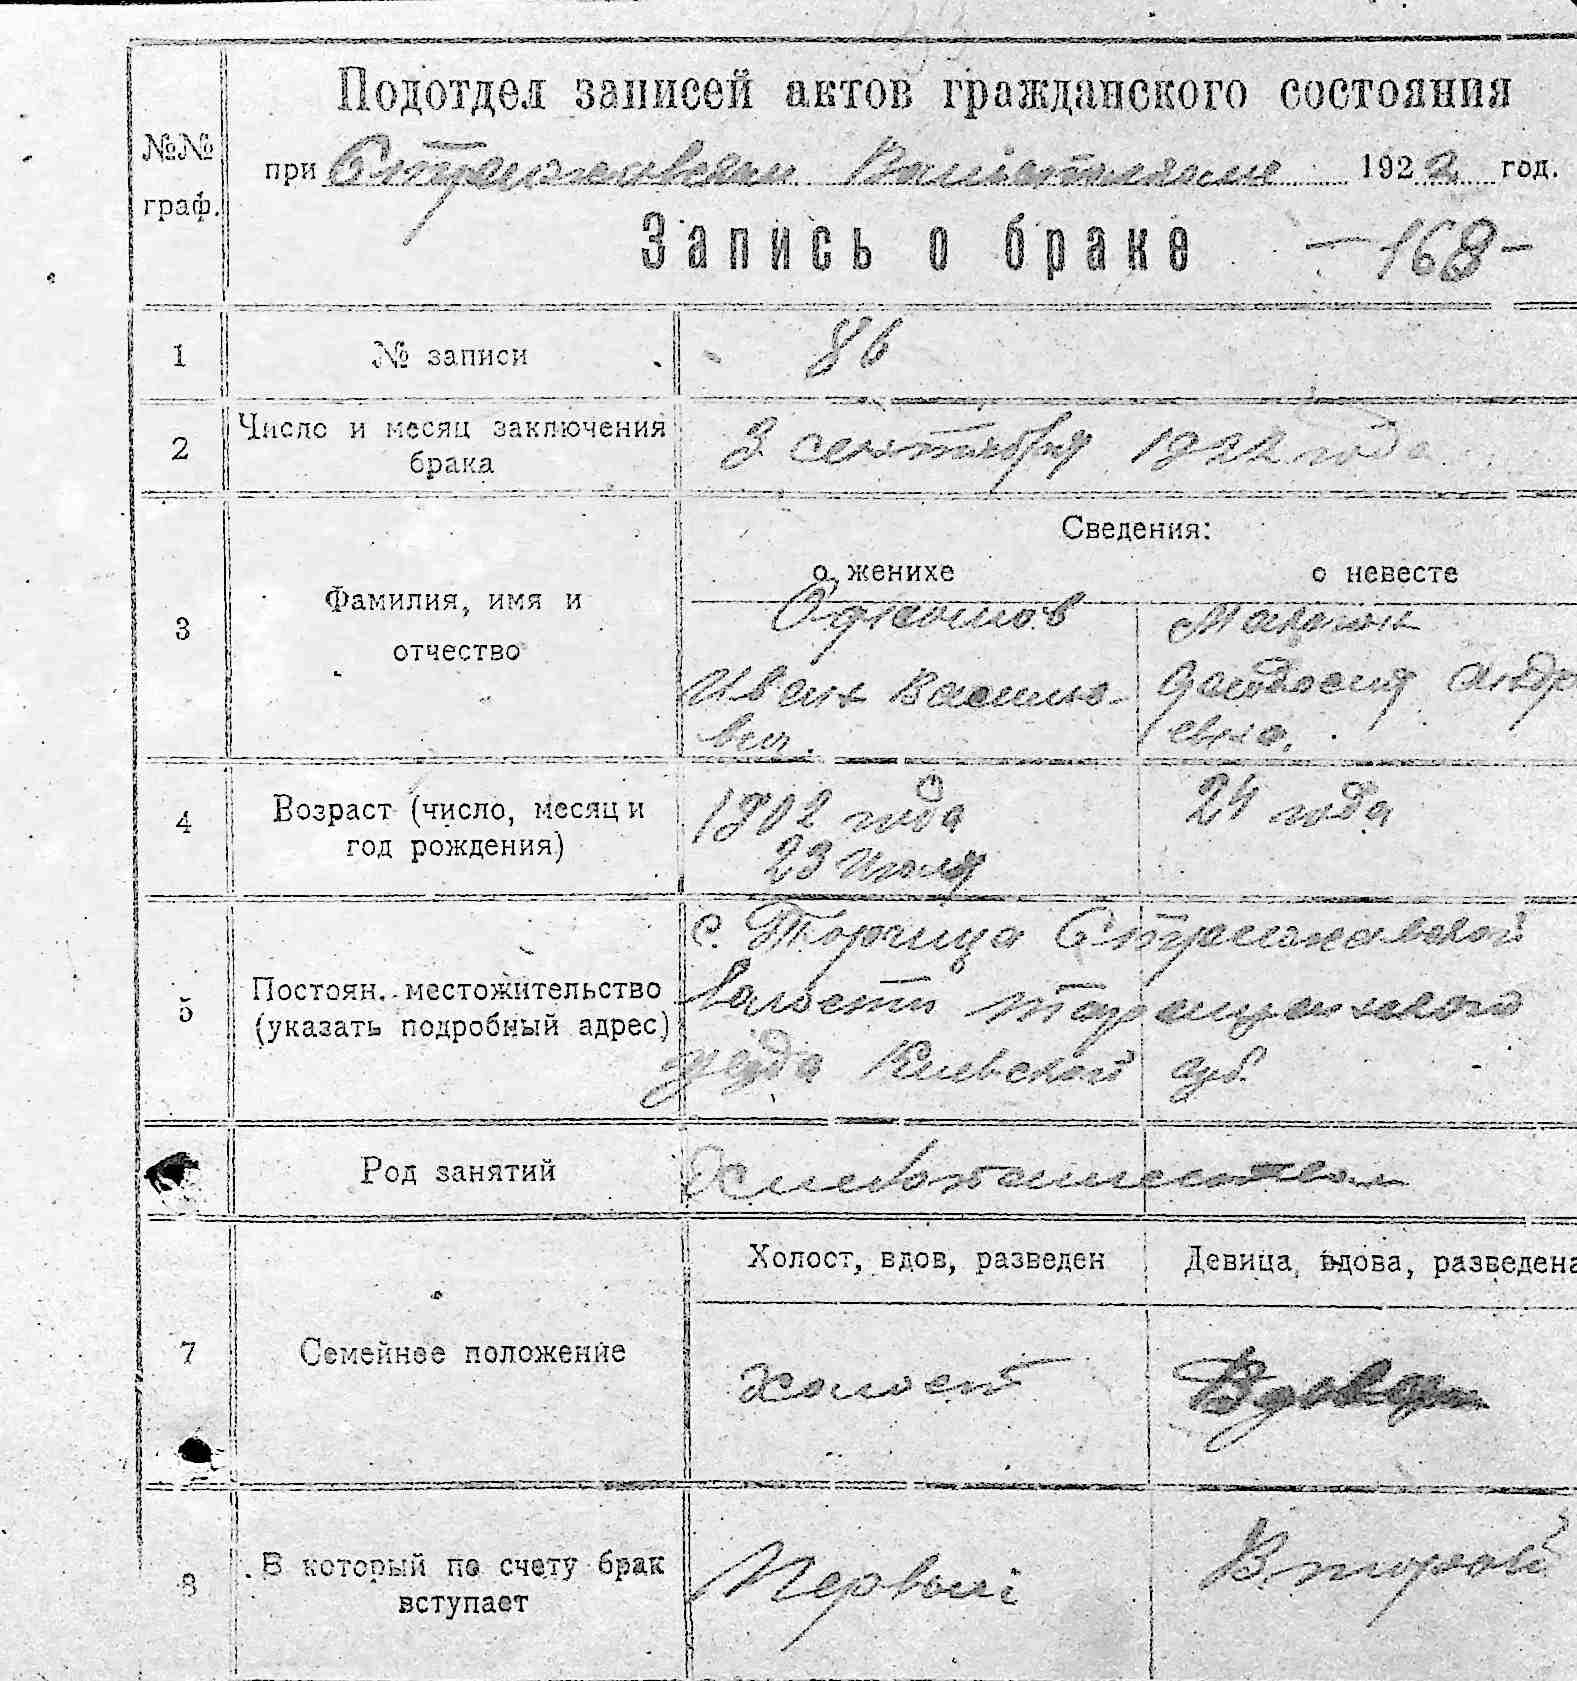 Подотдел записей актов гражданского состояния
№№ граф.
при Стрижевском 1922 год.
Запись о браке -168-
1 № записи 86
2 Число и месяц заключения брака 3 сентября 1922 года
Сведения:
о женихе о невесте
3 Фамилия, имя и отчество
Иван Василье-
вич.
Андр
евна.
4 Возраст (число, месяц и год рождения) 1902 года 24 года
23 июля
5 Постоян. местожительство (указать подробный адрес)
с. Торчица Стрижавской
волости Таращанского
уезда Киевской губ.
Род занятий Хлебопашество
Холост, вдов, разведен Девица, вдова, разведена
7 Семейнее положение холост Вдова
8 В который по счету брак вступает Первый Второй